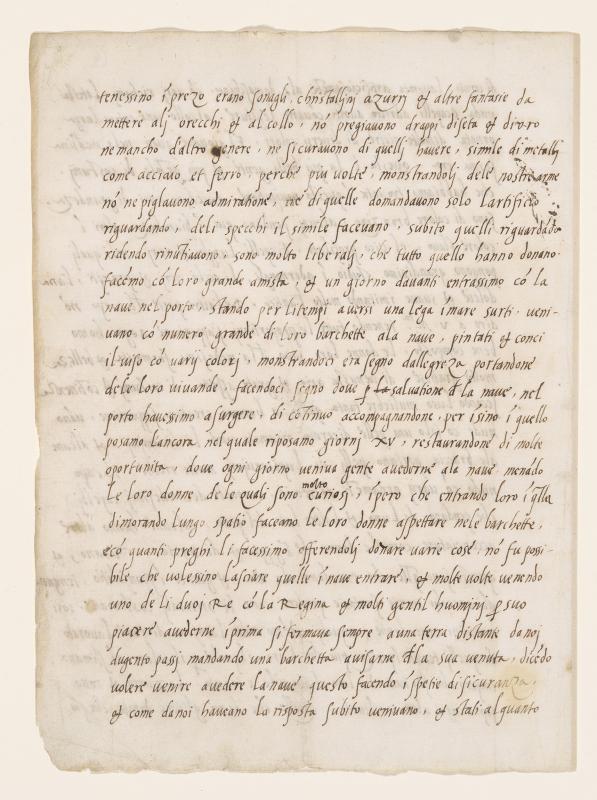 tenessino í prezo erano sonagli, christallinj azurrj & altre fantasie da
mettere alj orecchi & al collo, nó pregiavono drappi diseta & divro
ne mancho daltro genere, ne sicuravono di quellj havere, simile di metallj
come acciaio et ferro, perche piu volte, monstrandoli dele nostre arme
nó ne piglavono admiratione, ne di quelle domandavono solo lartificio
riguardando, deli specchi il simile facevano, subito quelli riguardádo
ridendo rinútiavono, sono molto liberalj, che tutto quello hanno donano.
facémo có loro grande amista, & un giorno davanti entrassimo có la
nave nel porto, stando per li tempi aversi una lega í mare surti, veni-
vano có numero grande di loro barchette ala nave, pintati & conci
il viso có varij colorj, monstrandoci era segno dallegreza portandone
dele loro vivande, facendoci segno dove p la salvatione đla nave, nel
porto havessimo asurgere, di cótinuo accompagnandone, per isino í quello
posamo lancora, nel quale riposamo giornj XV, restaurandone di molte
oportunita, dove ogni giorno veniva gente avederne ala nave menádo
le loro donne, dele quali sono molto curiosj, ípero che entrando loro í q̄lla
dimorando lungo spatio faceano le loro donne aspettare nele barchette,
e có quanti preghi li facessimo offerendoli donare varie cose, nó fu possi-
bile che volessino lasciare quelle í nave entrare, & molte volte venendo
uno de li duoj Re có la Regina & molti gentil huominj p suo
piacere avederne í prima si fermava sempre auna terra distante da noj
dugento passj mandando una barchetta avisarne đla sua venuta, dicédo
volere venire avedere la nave questo facendo í spetie di sicuranza,
& come da noi haveano la risposta subito venivano, & stati alquanto